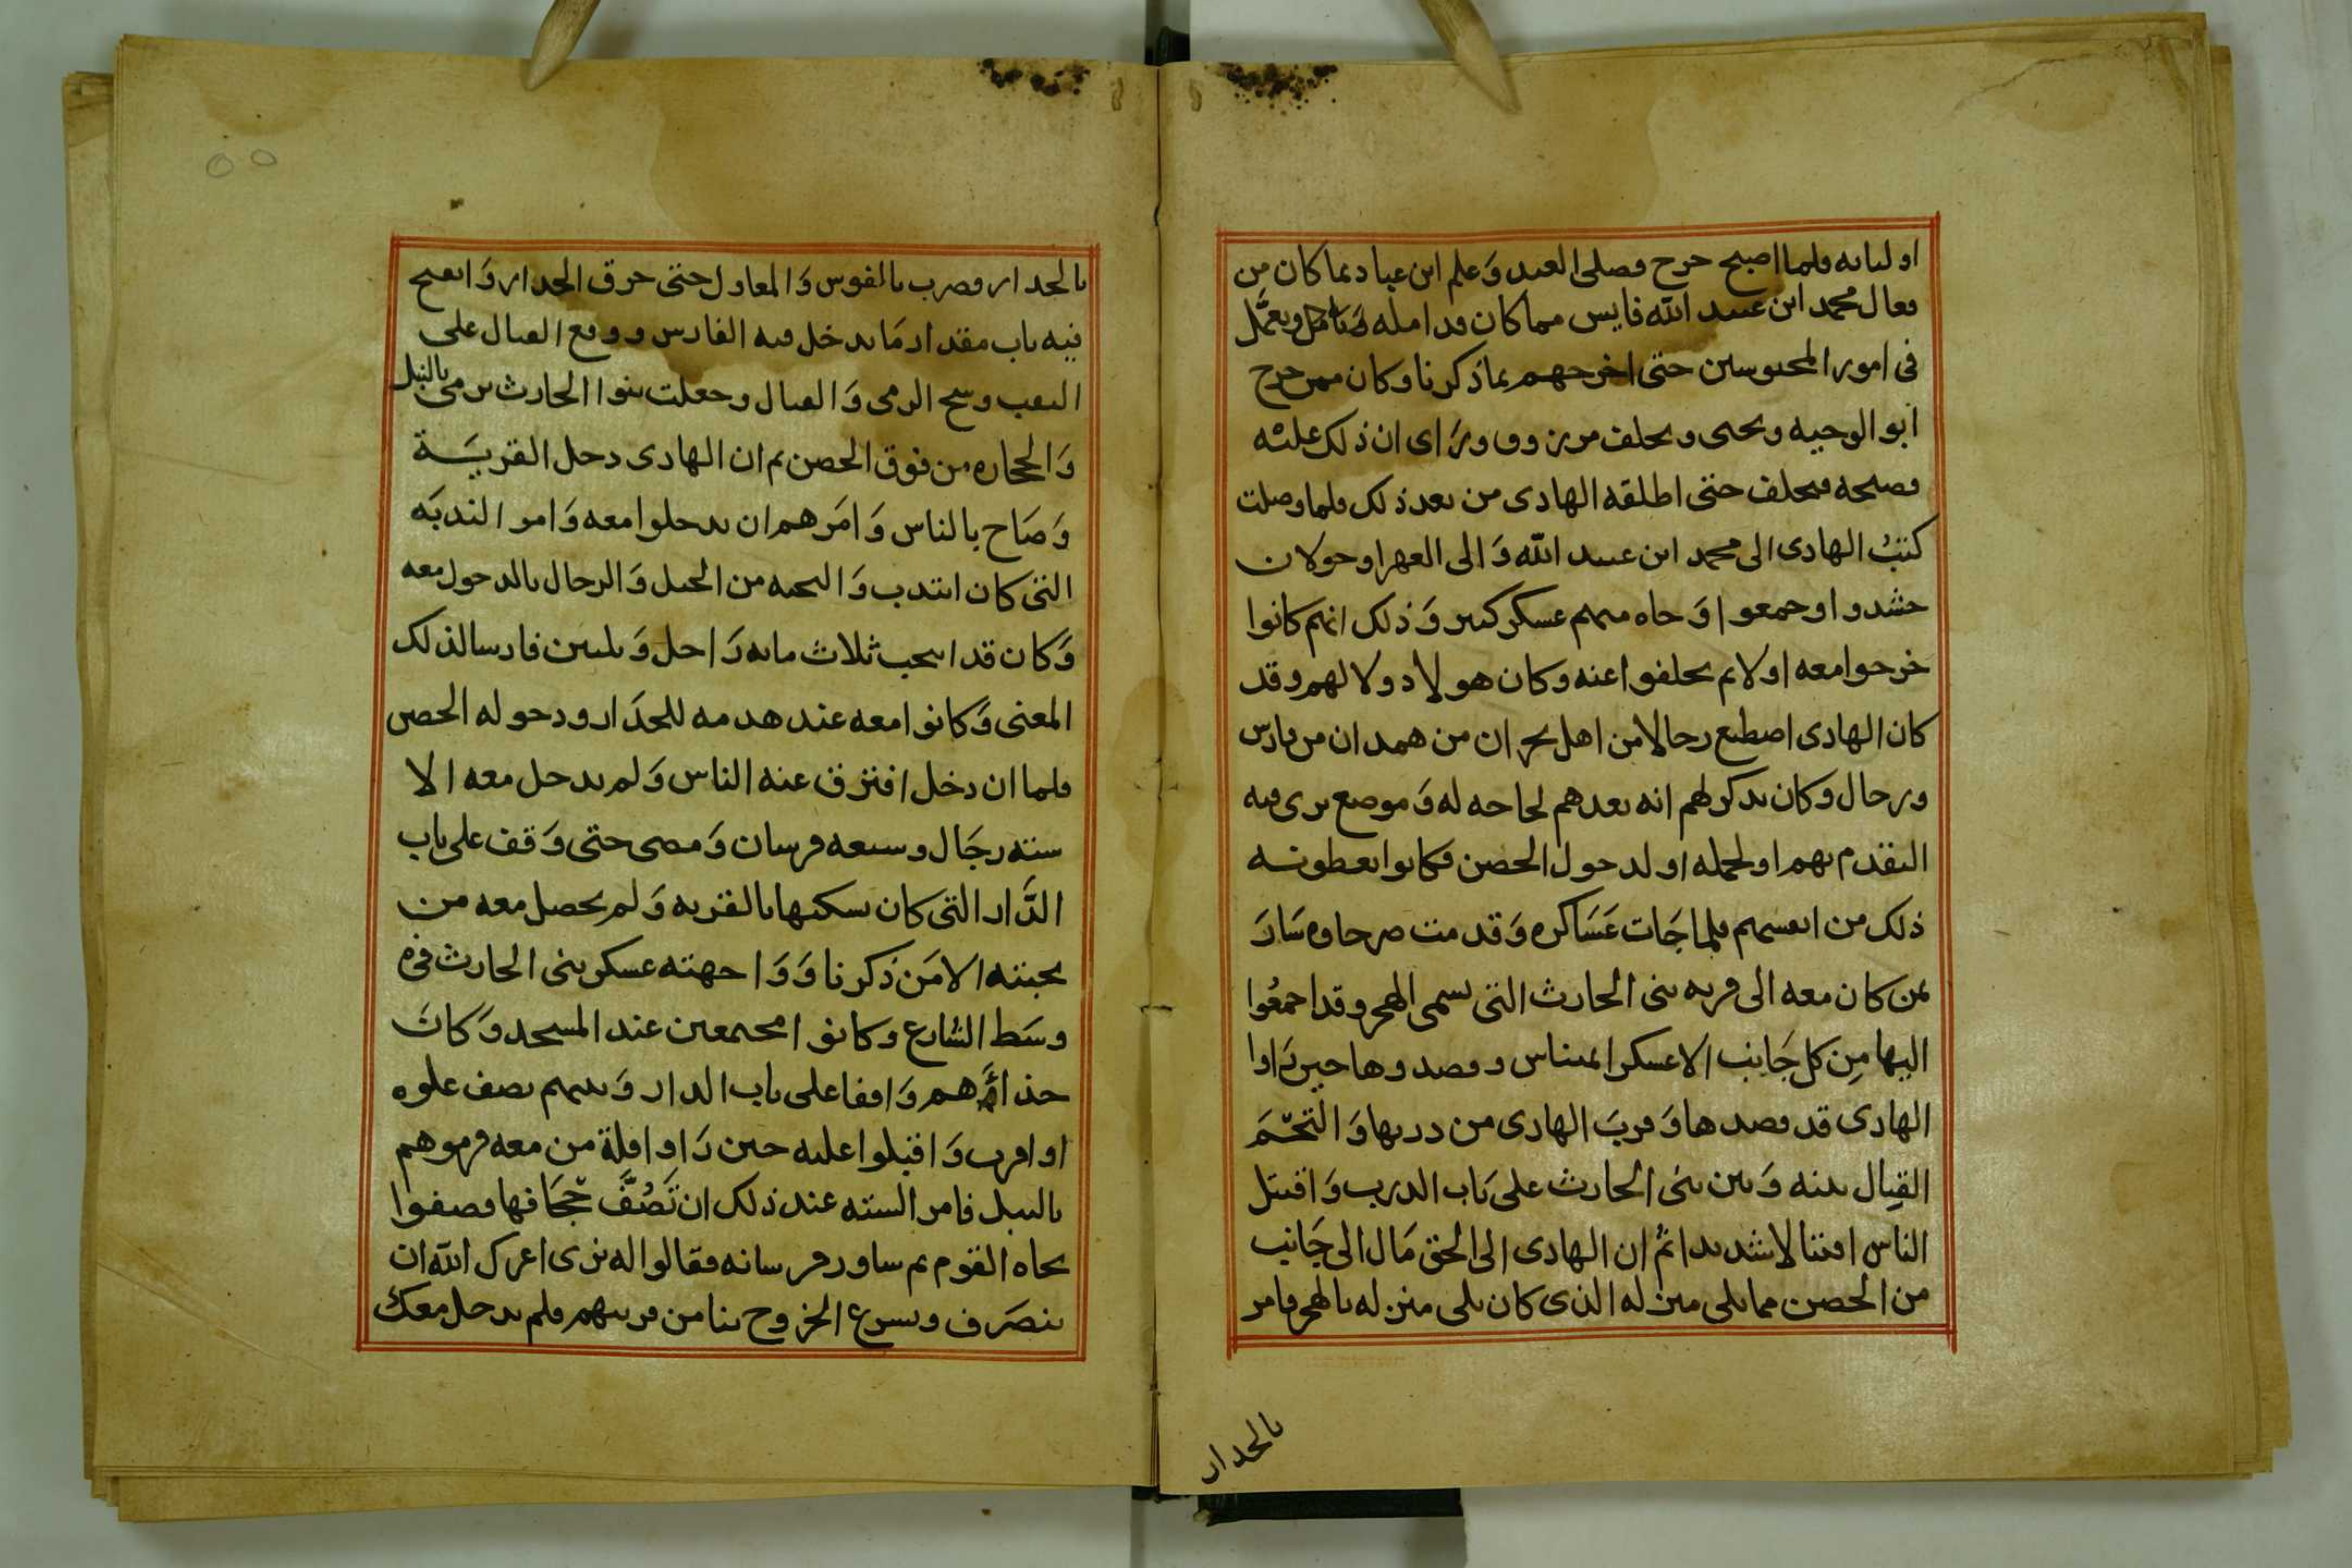 اوليائه فلما اصبح خرج فصلى العيد وَعلم ابن عباد بما كان من
فعال محمد ابن عبيد الله فايس مما كان قد امله ويعمل
في امور المحبوسين حتى اخرجهم بما ذكرنا وكان ممن خرج
ابو الوجيه ويحيى وتخلف مرزوق ورَاى ان ذلك عليه
فضيحه فتخلف حتى اطلقه الهادى من بعد ذلك فلما وصلت
كتبُ الهادى الى محمد ابن عبيد الله وَالى العهرا وخولان
حشدوا وجمعوا وَجاه منهم عسكر كبير وَذلك انهم كانوا
خرجوا معه اولا ثم تخلفوا عنه وكان هولاد ولا لهم وقد
كان الهادى اصطنع رجالا من اهل نجران من همدان من فارس
ورجال وكان يذكر لهم انه يعدهم لحاجه له وَموضع يرى فيه
التقدم بهم او لحمله او لدخول الحصن فكانوا يعطونه
ذلك من انفسهم فلما جَات عَسَاكره وَقدمت صرحاوه سَارَ
بمن كان معه الى قريه بنى الحارث التى تسمى الهجر وقد اجمعُوا
اليها مِن كل جَانِب الا عسكر الميناس وقصدوها حين رَاوا
الهادى قد قصدها وَقربَ الهادى من دربها وَالتحَمَ
القِتال بينه وَبين بنى الحارث على بَاب الدرب وَاقتتل
الناس اقتتالا شديدا ثمُ ان الهادى الى الحق مَال الى جَانِب
من الحصن مما يلى منزله الذى كان يلى منزله بالهجر فامر
بالجدار
بالجدار فضرب بالفوس وَالمعاول حتى خرق الجدار وَانفتح
فيه باب مقدار مَا يدخل فيه الفارس ووقع القتال على
النقب وسح الرمى وَالقتال وجعلت بنوا الحارث ترمى بالنبل
وَالحجاره من فوق الحصن ثم ان الهادى دخل القريَة
وَصَاح بالناس وَامَرهم ان يدخلوا معه وَامر الندبَه
التى كان انتدب وَالنخبه من الخيل وَالرجال بالدخول معه
وَكان قد انتخب ثلاث مائه رَاجل وَثلثين فارسا لذلك
المعنى وَكانوا معه عند هدمه للجدَار ودخوله الحصن
فلما ان دخل افترق عنه الناس وَلم يدخل معه الا
سته رجَال وسبعه فرسان وَمضى حتى وَقف على باب
الدَّار التى كان يسكنها بالقريه وَلم يحصل معه من
نخبته الا مَن ذكرنا وَوَاجهته عسكر بنى الحارث فى
وسَط الشارع وكانوا مجتمعين عند المسجد وَكانَ
حذاهم وَاقفا على باب الدار وَبينهم نصف غلوه
او اقرب وَاقبلوا عليه حين رَاوا قلة من معه فرموهم
بالنبل فامر السته عند ذلك ان تَصُفَّ حجَافها فصفوا
تجاه القوم ثم ساور فرسانه فقالوا له نرى اعزك الله ان
ننصَرف ونسرع الخروج بنا من قريتهم فلم يدخل معك